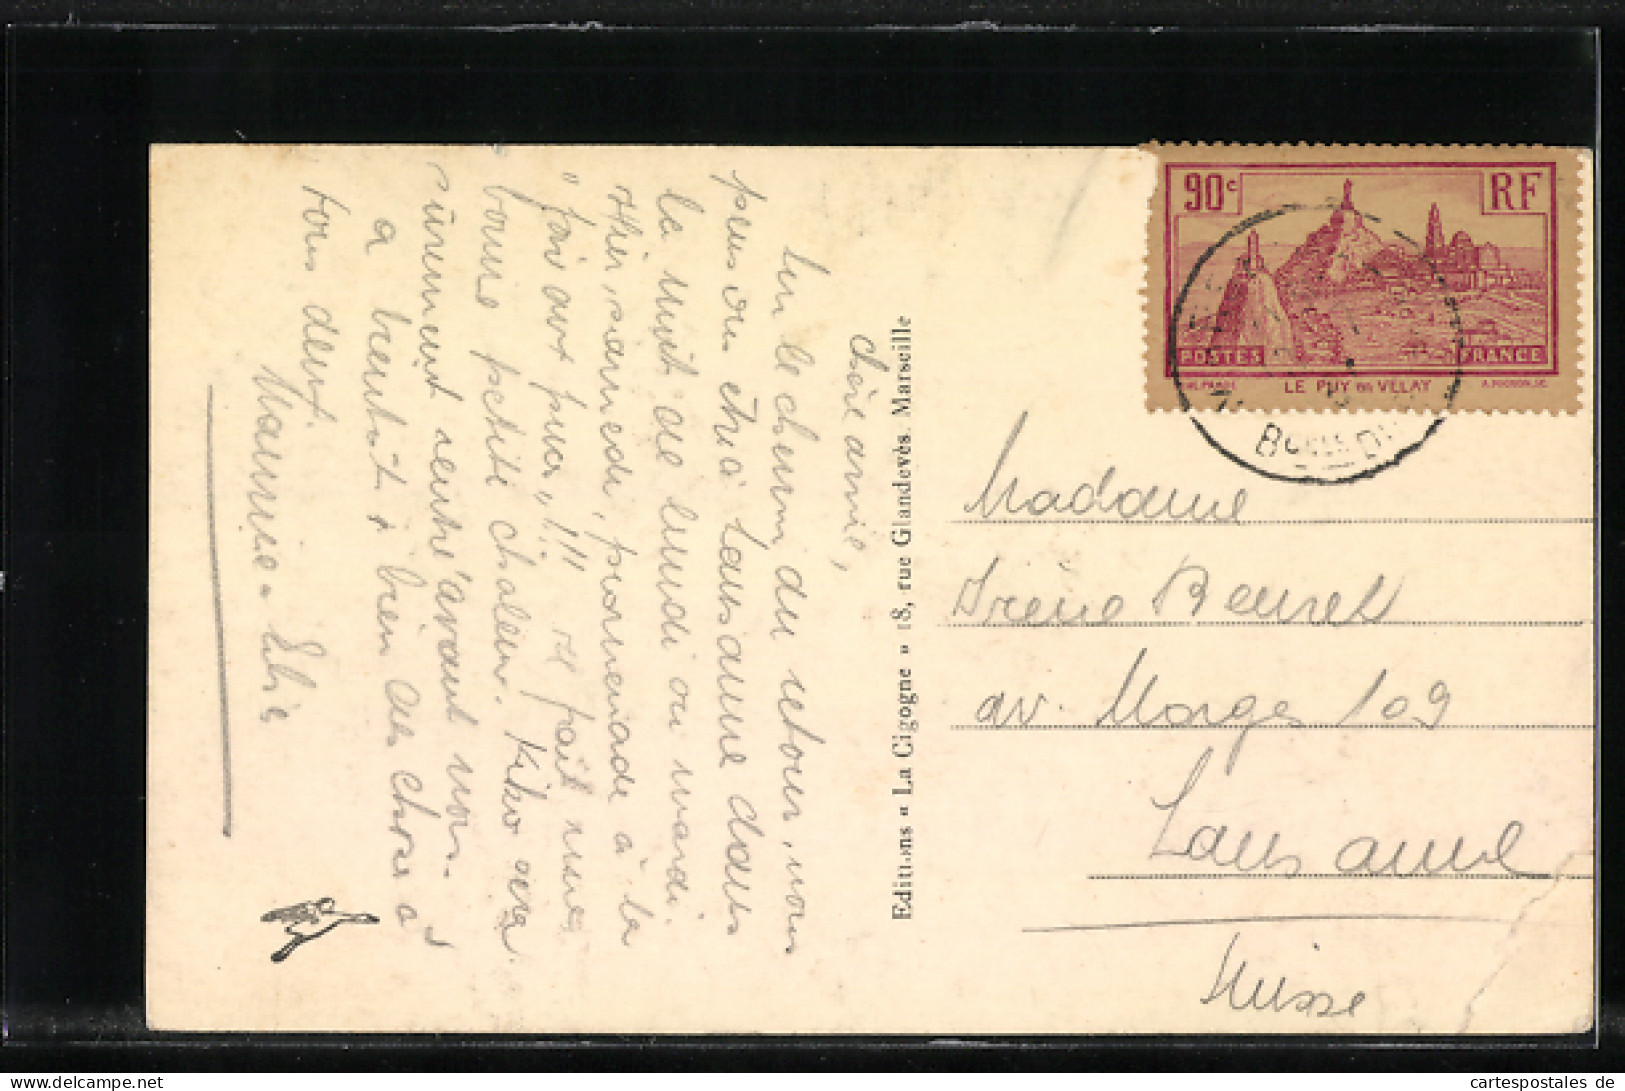 chère amie,
Sur le chemin du retour, nous
pensons être à Lausanne dans
la nuit de lundi ou mardi.
Hier, samedi, promenade à la
" foir aux puces " !!! Il fait une
bonne petite chaleur. Kiko sera
sûrement rentré avant nous.
à bientôt + bien des choses à
tous deux.
Maurice - Elsie
Editions « La Cigogne » 18, rue Glandevès, Marseille
90c RF
POSTES FRANCE
LE PUY en VELAY
Madame
Irène
av. Morges 109
Lausanne
Suisse
cartespostales de